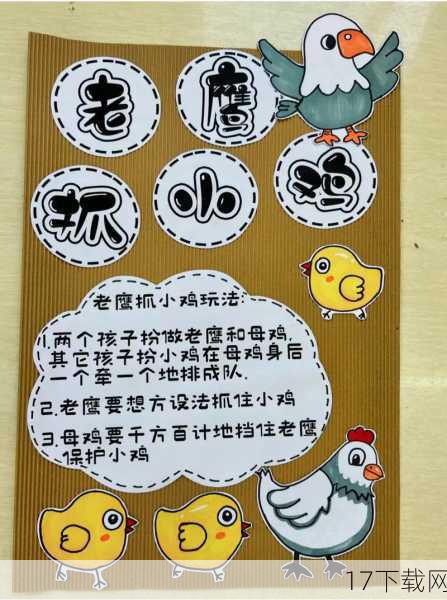 老鹰
抓小鸡
老鹰抓小鸡玩法:
1.两个孩子扮做老鹰和母鸡,
其它孩子扮小鸡在母鸡身后
一个牵一个地排成队.
2.老鹰要想方设法抓住小鸡
3.母鸡要千方百计地挡住老鹰
保护小鸡
17下载网